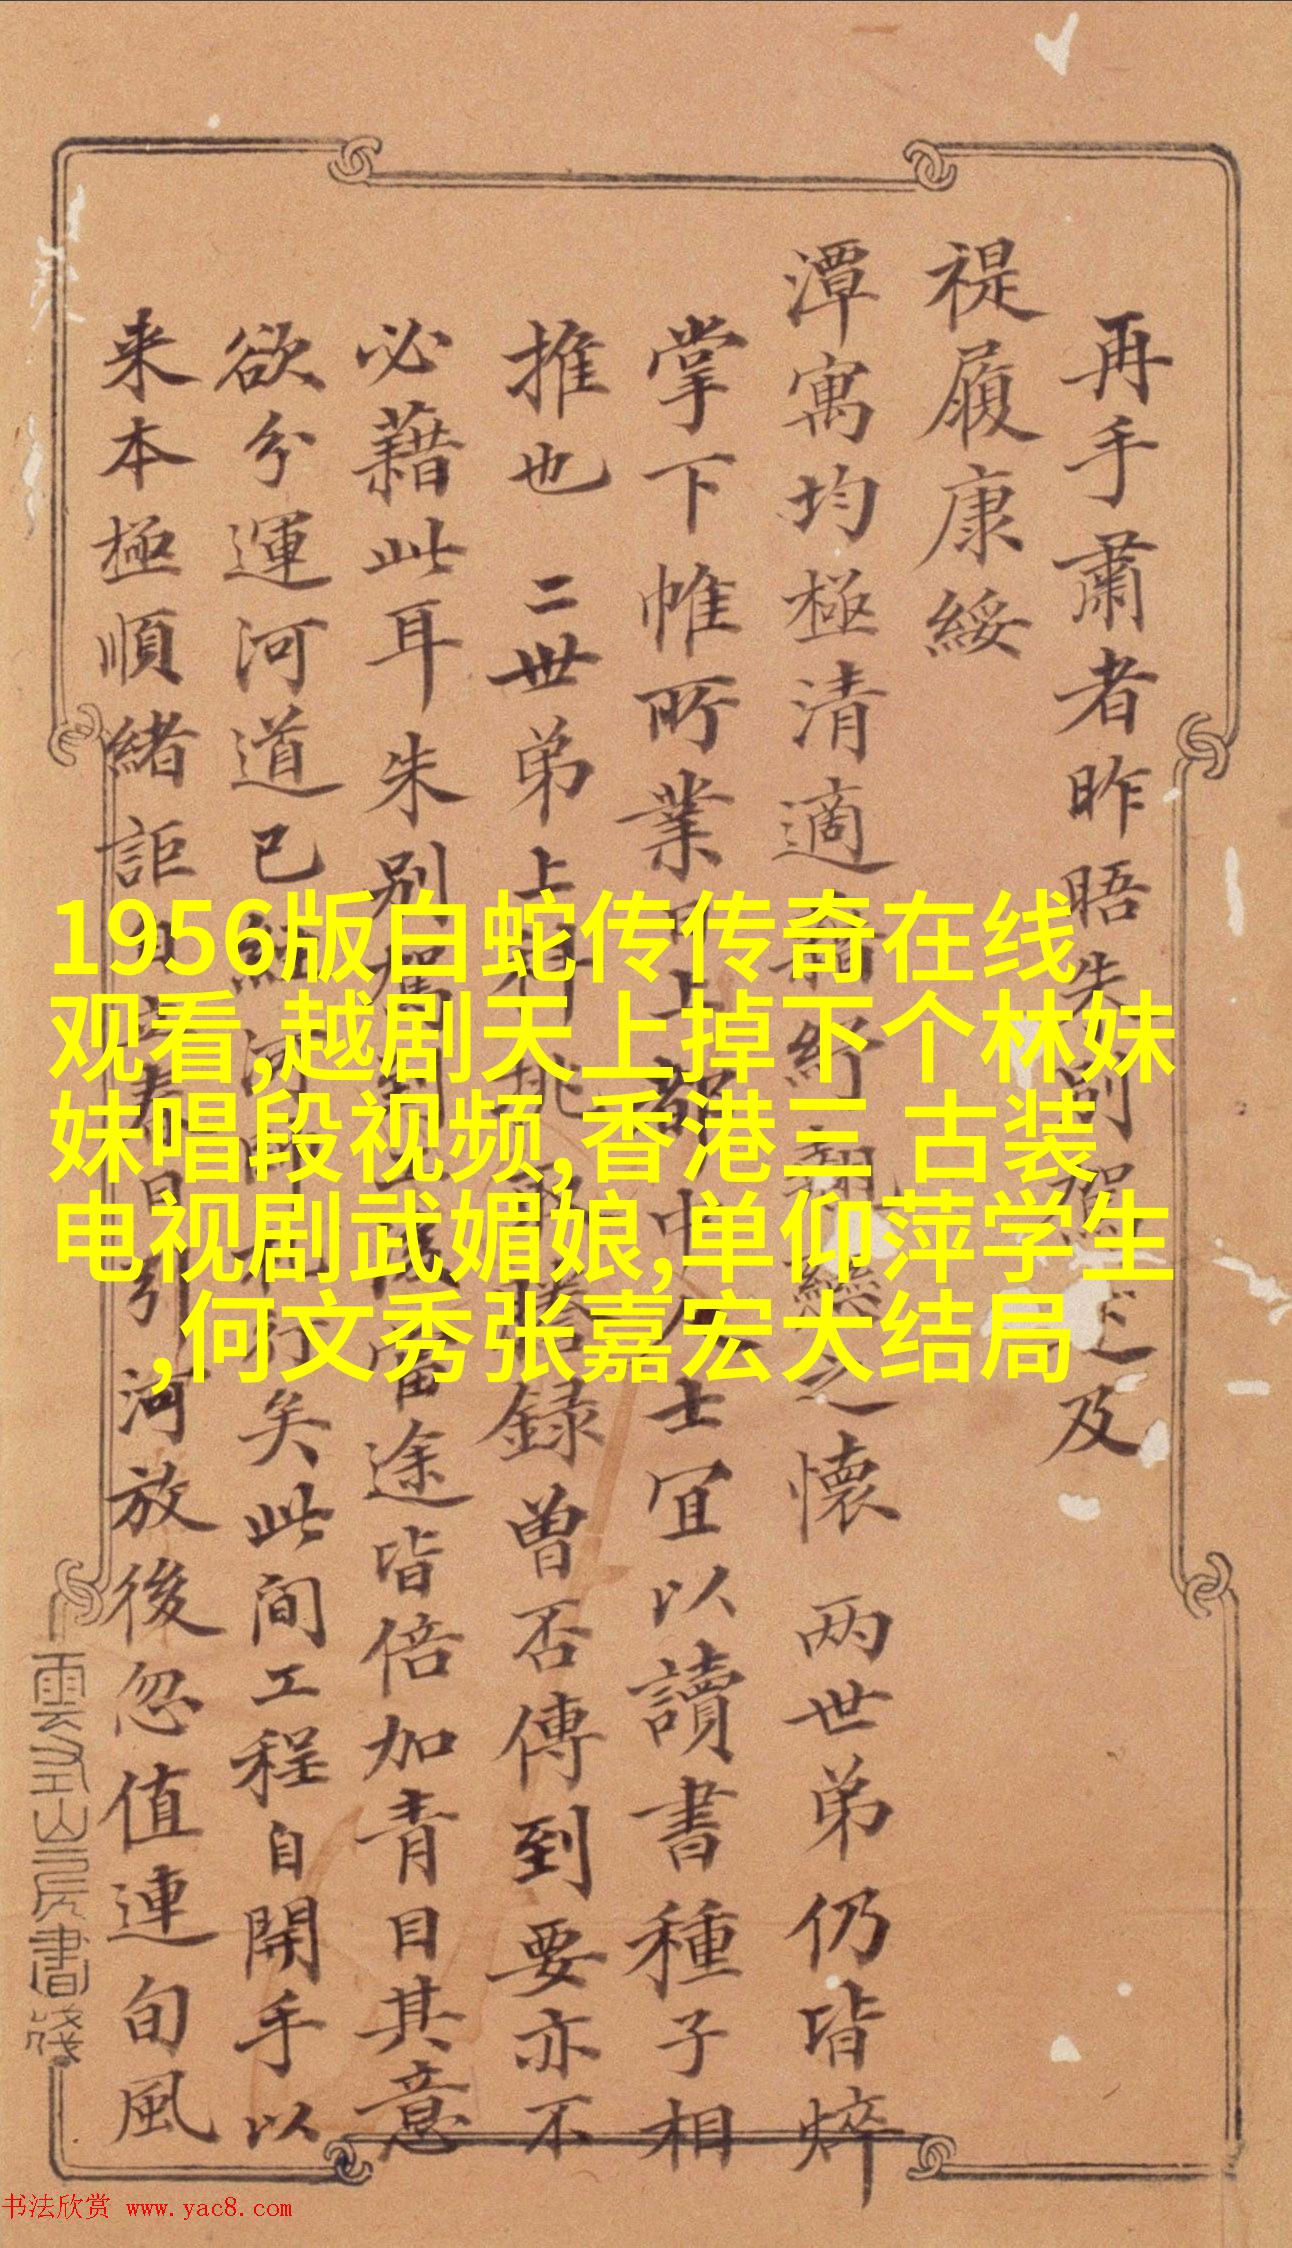 再手肅者昨晤朱別駕述及
禔履康綏
潭寓均極清適 之懷 两世弟仍皆焠
掌下帷所業 士宜以讀書種子相
推也 二世弟上科 謄録曾否傳到要亦不
必藉此耳朱別駕到 當途皆倍加青目其意
欲分運河道已 行矣此间工程自開手以
来本極順緒詎 引河放後忽值連旬風
雲 山房書箋
1956版白蛇传传奇在线
观看,越剧天上掉下个林妹
妹唱段视频,香港三 古装
电视剧武媚娘,单仰萍学生
,何文秀张嘉宏大结局
书法欣赏 www.yac8.com